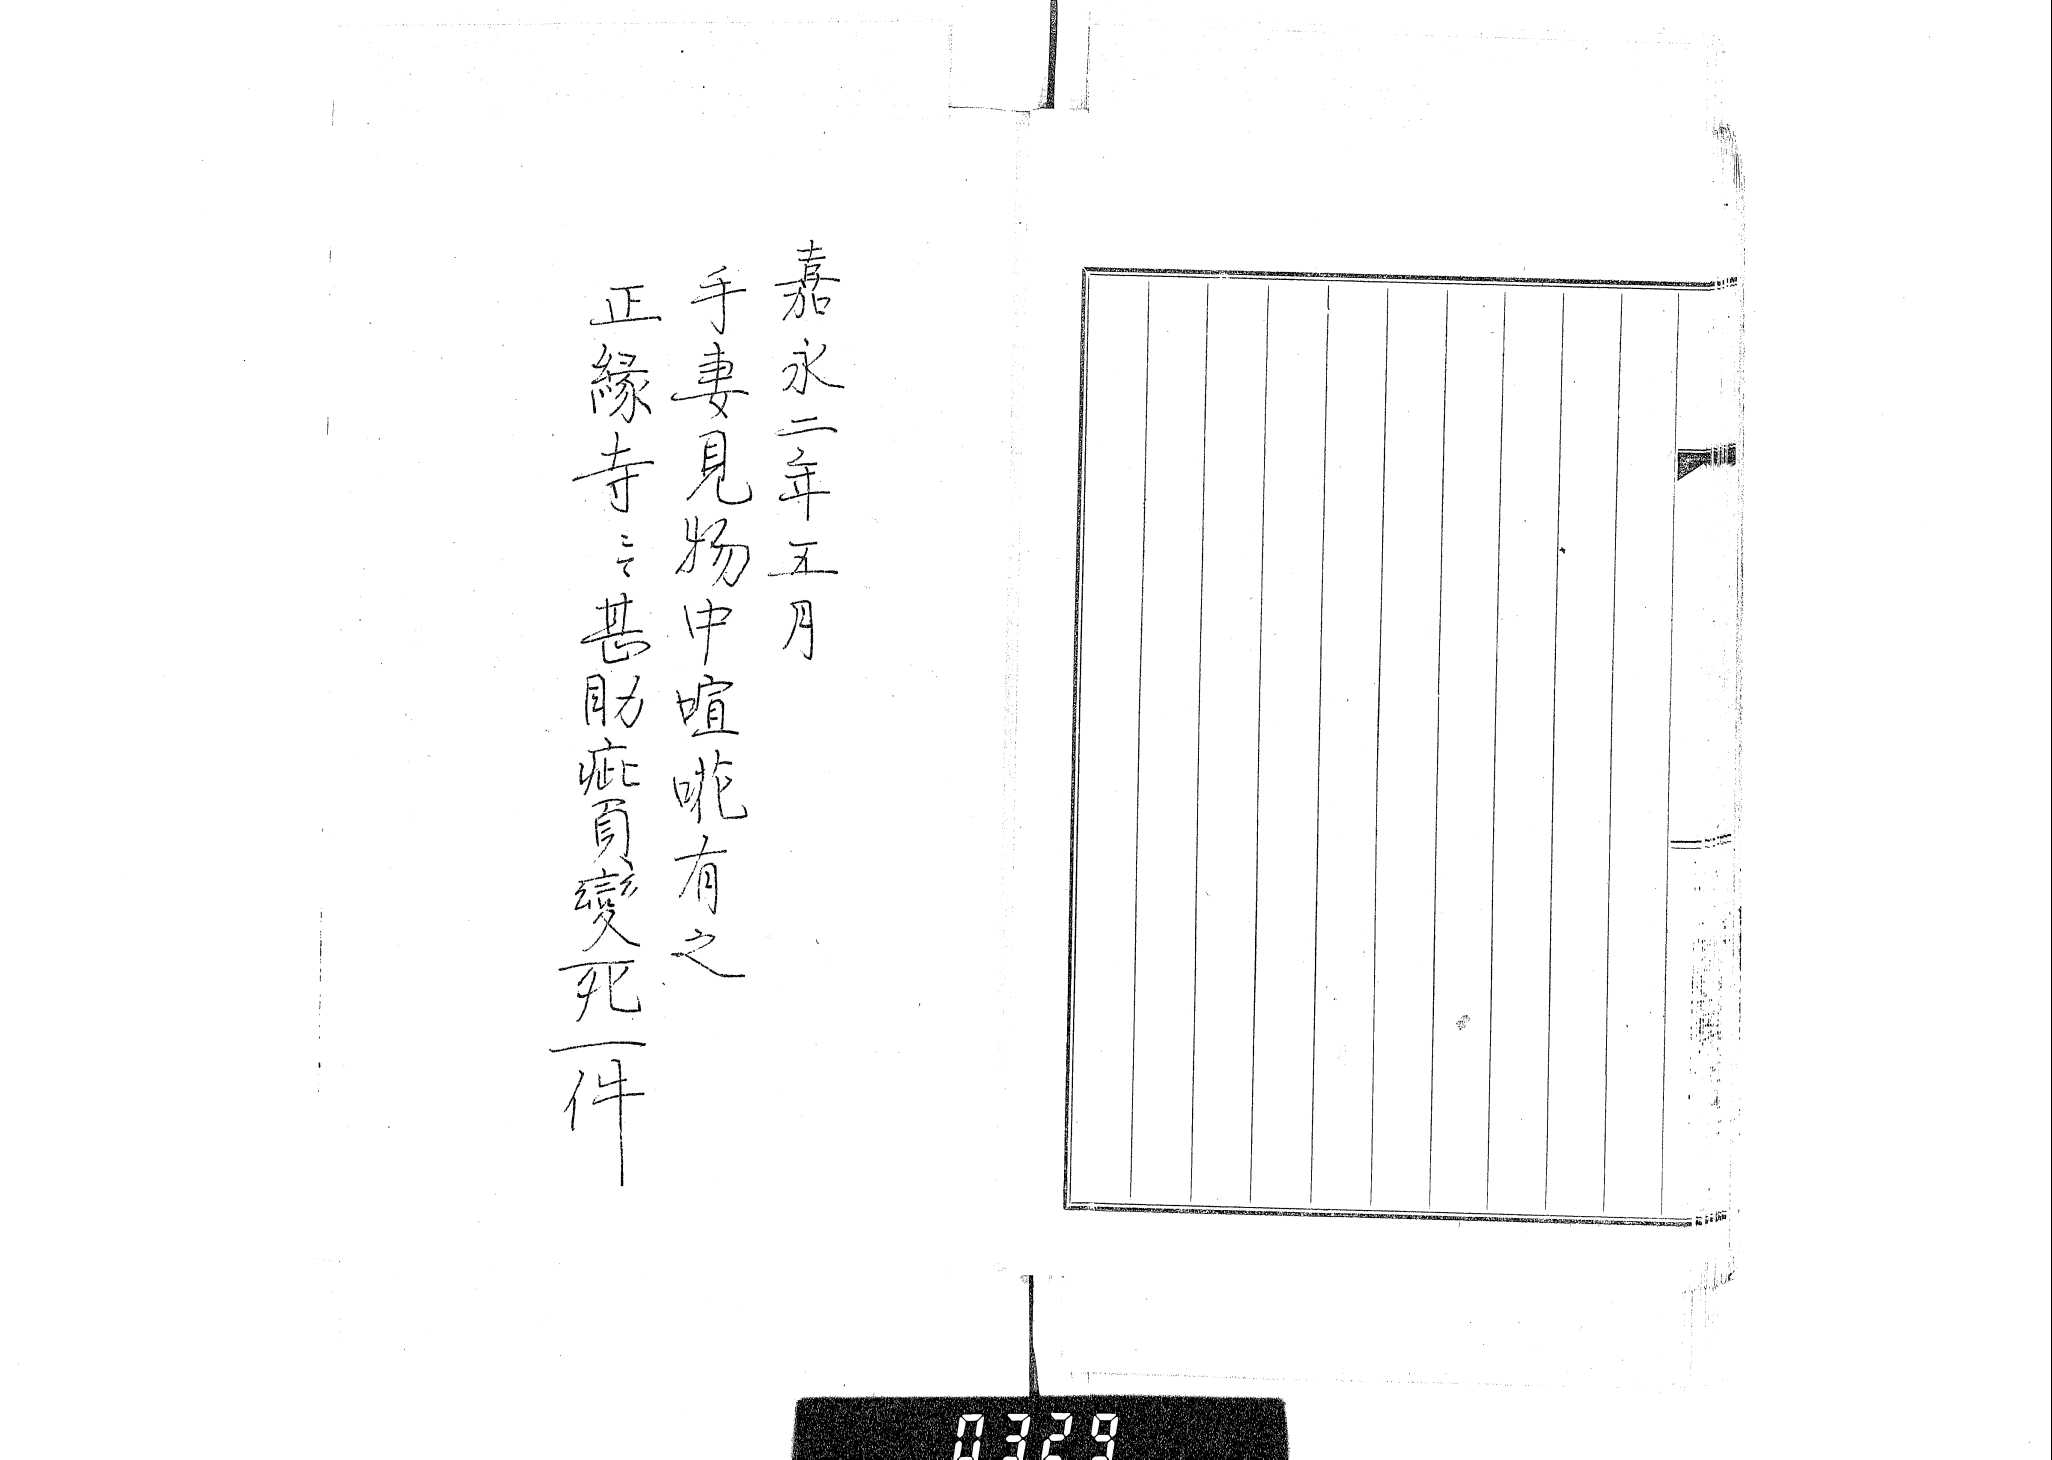 嘉永二年五月
手妻見物中喧嘩有之
正縁寺ニテ甚助疵負變死一件
0329